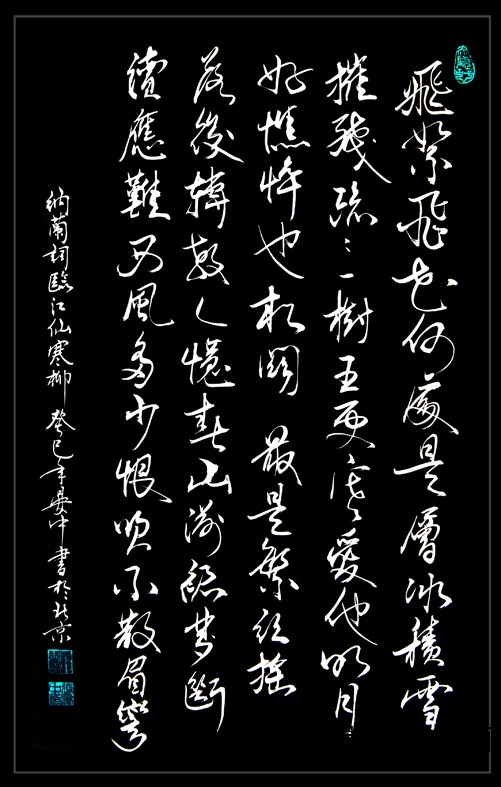 飛絮飛花何處是層冰積雪
摧殘疏々一樹五更寒愛他明月
好憔悴也相關 最是繁絲搖
落後轉教人憶春山湔裙夢斷
續應難西風多少恨吹不散眉彎
納蘭詞臨江仙寒柳 癸巳年中書於北京